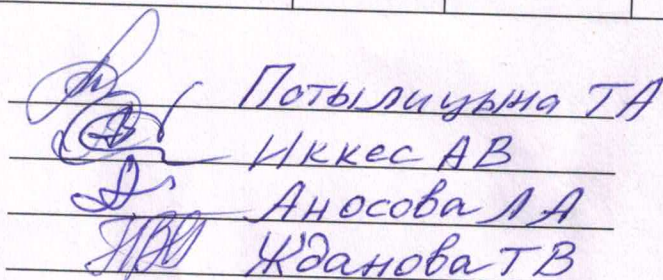 Потылицына ТА
Иккес АВ
Аносова ЛА
Жданова ТВ